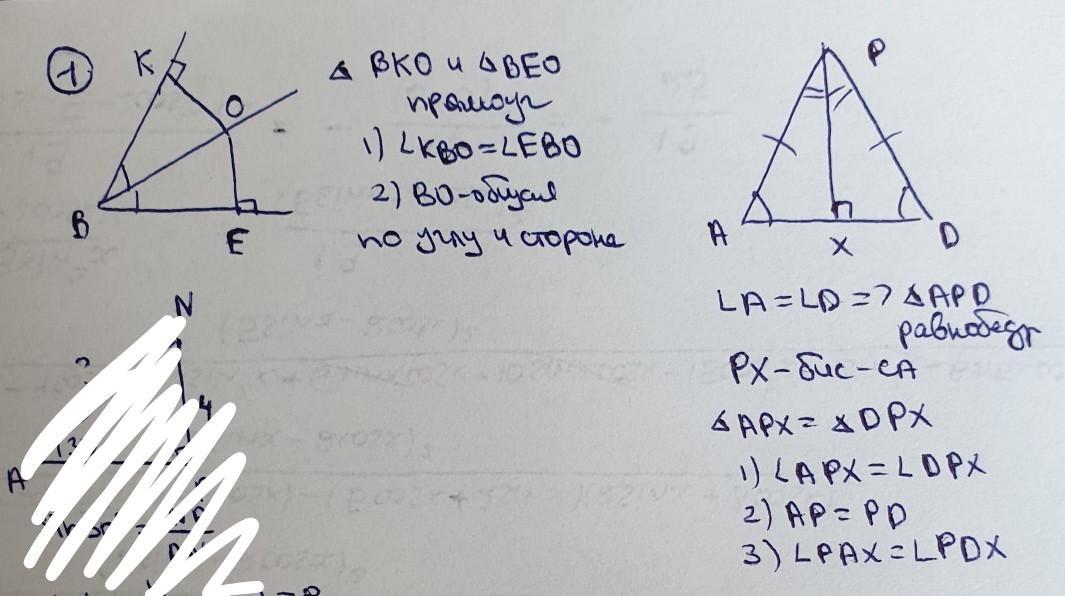 1
K
O
B
E
∆ BKO и ∆BEO
прямоуг
1) ∠KBO=∠EBO
2) BO-общая
по углу и стороне
P
A
X
D
∠A=∠D => ∆APD
равнобедр
PX-бис-са
∆APX= ∆DPX
1) ∠APX=∠DPX
2) AP=PD
3) ∠PAX=∠PDX
N
4
A